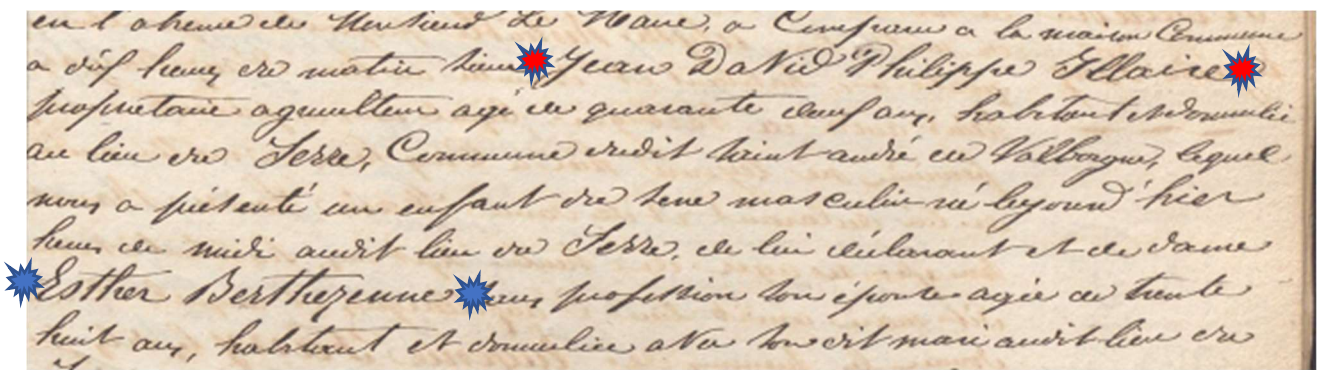 en l'absence de Monsieur Le Maire, a Comparu a la maison Commune
a dix heures du matin Sieur Jean David Philippe Illaire
propriétaire agriculteur agé de quarante neuf ans, habitant et domicilié
au lieu de Serre, Commune dudit Saint andré de Valborgne, lequel
nous a présenté un enfant du sexe masculin né le jour d'hier
heure de midi audit lieu de Serre, de lui déclarant et de dame
Esther Berthezenne sans profession son épouse agée de trente
huit ans, habitant et domiciliée avec son dit mari audit lieu de